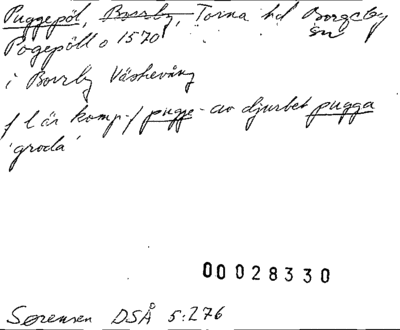 Puggepöl, Borrby, Torna hd Borgeby sn
Pogepöll o 1570
i Borrby Västervång
f l är komp. f pugge- av djurbet pugga
'groda'
00028330
Sørensen DSÅ 5:276